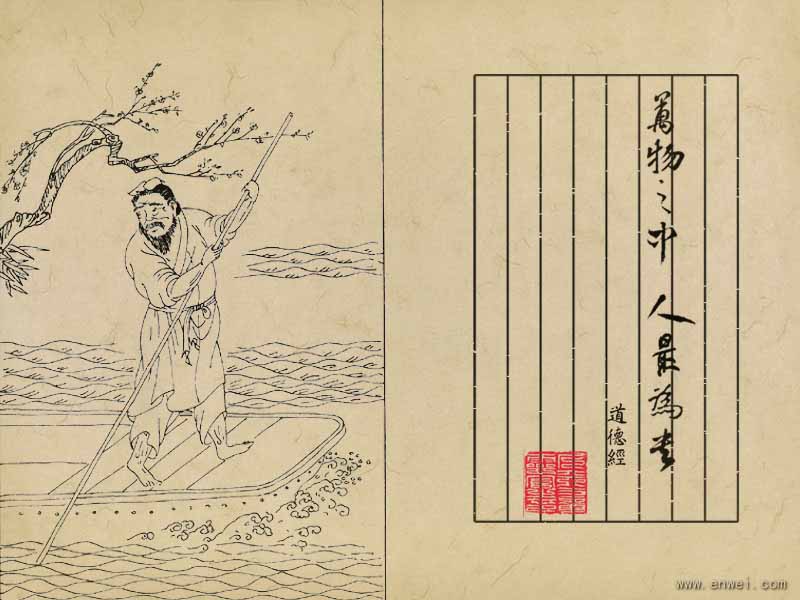 萬物之中 人最為貴
道德經
www.enwei.com